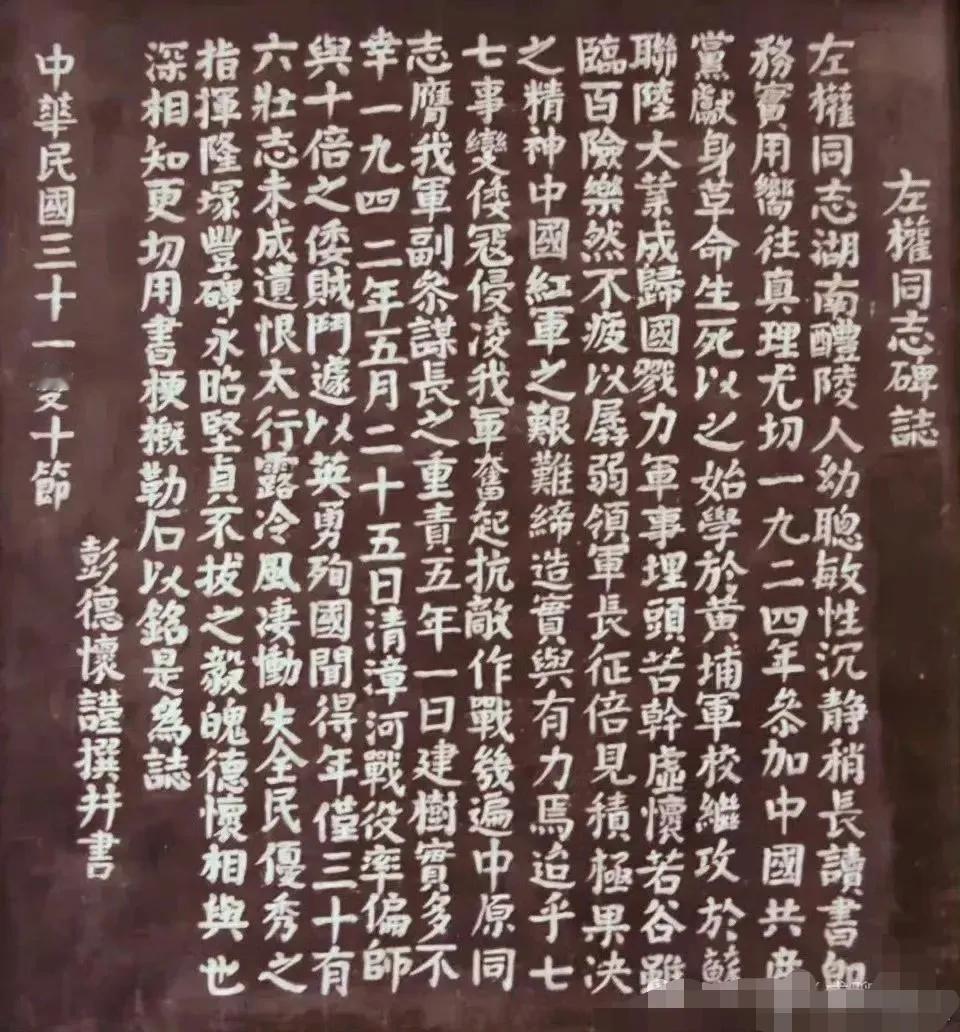 左權同志碑誌
左權同志湖南醴陵人幼聰敏性沉静稍長讀書即
務實用嚮往真理尤切一九二四年參加中國共產
黨獻身革命生死以之始學於黄埔軍校繼攻於蘇
聯陸大業成歸國戮力軍事埋頭苦幹虚懷若谷雖
臨百險樂然不疲以孱弱領軍長征倍見積極果決
之精神中國紅軍之艱難締造實與有力焉迨乎七
七事變倭寇侵凌我軍奮起抗敵作戰幾遍中原同
志膺我軍副參謀長之重責五年一日建樹實多不
幸一九四二年五月二十五日清漳河戰役率偏師
與十倍之倭賊鬥遽以英勇殉國聞得年僅三十有
六壯志未成遺恨太行露冷風凄慟失全民優秀之
指揮隆塚豐碑永昭堅貞不拔之毅魄德懷相與也
深相知更切用書梗概勒石以銘是為誌
彭德懷謹撰并書
中華民國三十一双十節